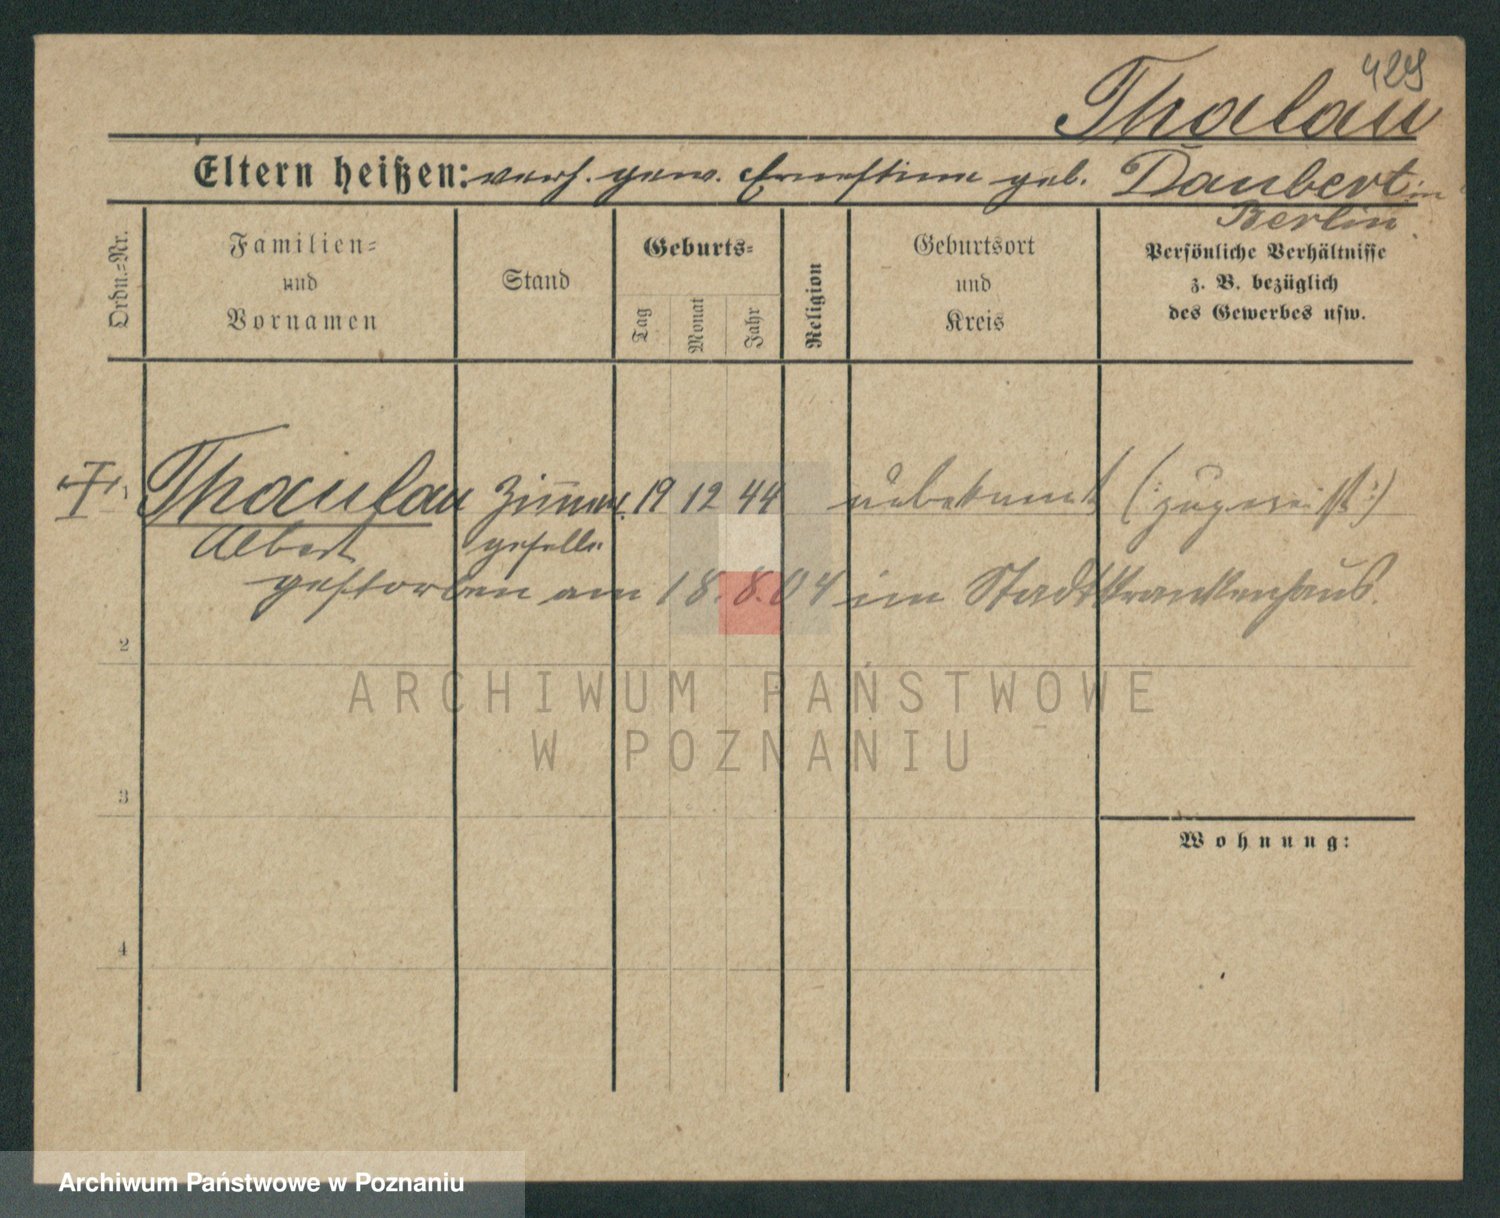 429
Thalau
Eltern heißen: verh. gew. Ernestine geb. Daubert in
Berlin.
Ordn.-Nr.
Familien-
und
Vornamen
Stand
Geburts-
Tag
Monat
Jahr
Religion
Geburtsort
und
Kreis
Persönliche Verhältnisse
z. B. bezüglich
des Gewerbes usw.
1 Thaulau Zimmer 19 12 44 unbekannt (:zugereist:)
Albert geselle
gestorben am 18.8.04 im Stadtkrankenhaus.
2
ARCHIWUM PAŃSTWOWE
W POZNANIU
3
Wohnung:
4
Archiwum Państwowe w Poznaniu